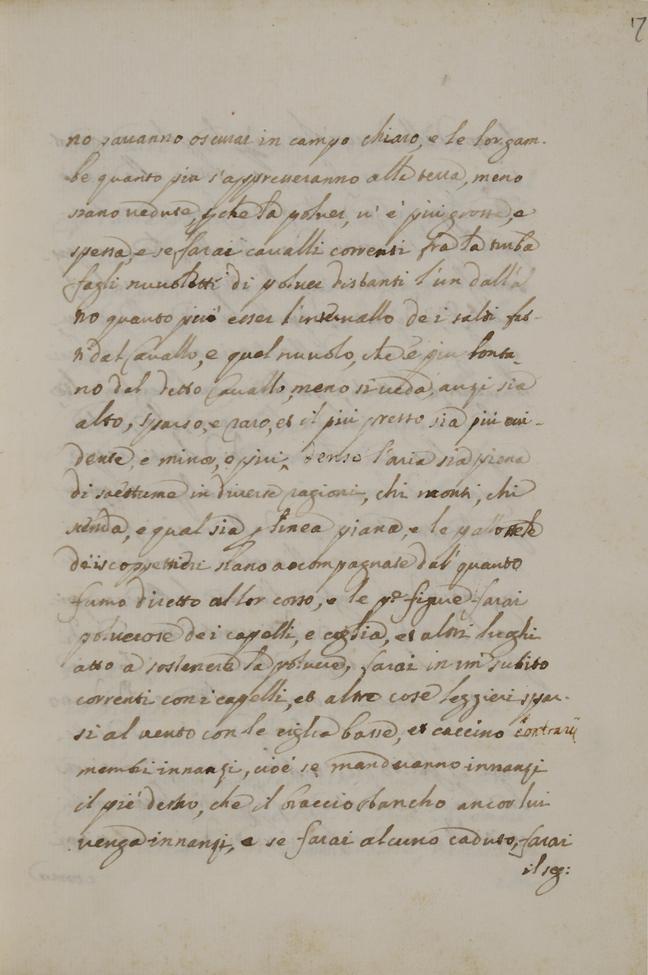 7
no saranno oscurar in campo chiaro, e le lor gam-
be quanto piu s'appresseranno alla terra, meno
siano vedute, pche la polver, u' è piu grossa, e
spessa, e se farai cavalli correnti fra la turba
fagli nuvoletti di polver distanti l'un dall'al
no quanto può esser l'intervallo de i salti fat-
ti dal Cavallo, e quel nuvolo, che è piu lonta-
no del detto Cavallo, meno si veda, anzi sia
alto, sparso, e raro, et il piu presso sia piu evi-
dente, e minor, e piu, denso l'aria sia piena
di saettume in diverse ragioni, chi monti, chi
scenda, e qual sia p linea piana, e le pallottole
de iscoppettieri siano accompagnate dal quanto
fumo dietro al lor corso, e le pe figure farai
polverose de i capelli, e ciglia, et altri luoghi
atto a sostenere la polvere, farai in un subito
correnti con i capelli, et altre cose leggieri spar-
si al vento con le ciglia basse, et caccino contrarij
membri innanzi, cioè se manderanno innanzi
il piè destro, che il braccio stancho ancor lui
venga innanzi, e se farai alcuno caduto, farai
il seg: